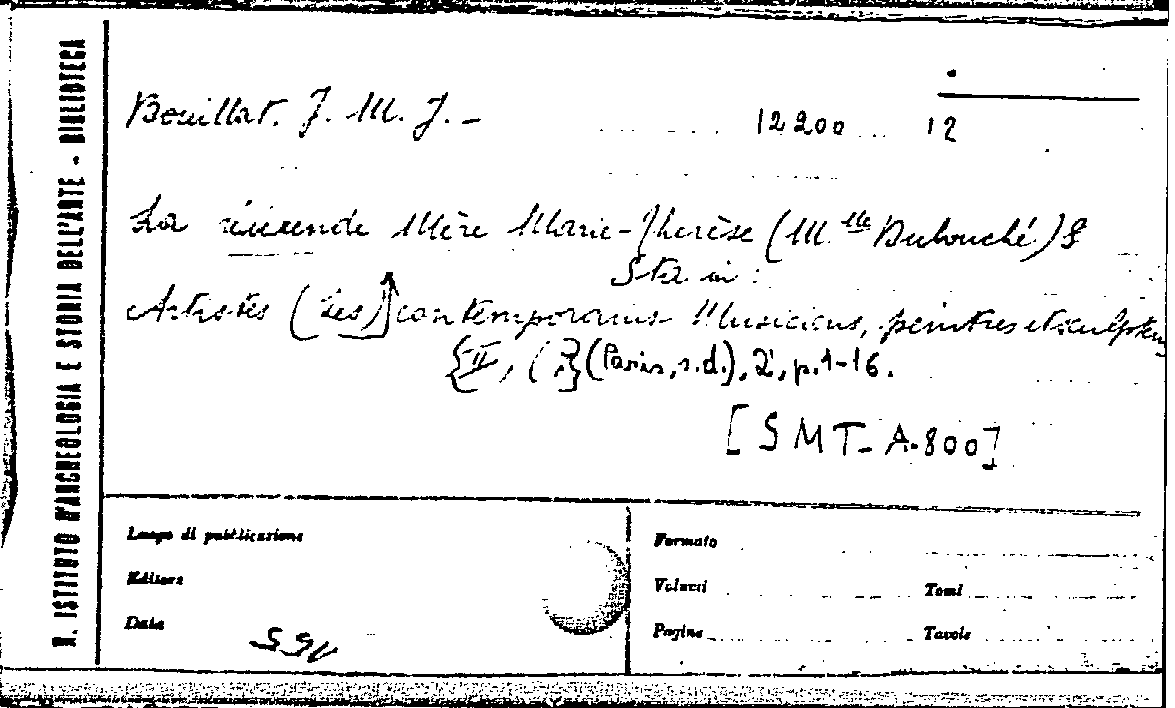 R. ISTITUTO D'ARCHEOLOGIA E STORIA DELL'ARTE - BIBLIOTECA
Bouillat. J. M. J. -
12200 12
La révérende Mère Marie-Therèse (M.lle Dubouché) §
Sta in:
Artistes (Les) contemporains Musiciens, peintres et sculpteurs
{II, (?} (Paris, s.d.), 2, p. 1-16.
[SMT-A.800]
Luogo di pubblicazione
Editore
Data
Formato
Volumi Tomi
Pagine Tavole